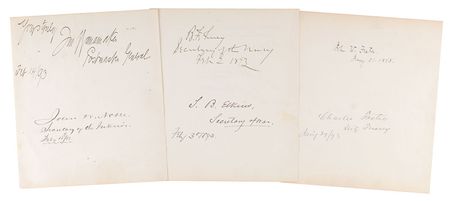 Yours truly
Jno Wanamaker
Postmaster General
Feb 14, 93
John W. Noble
Secretary of the Interior
B. F. Tracy
Secretary of the Navy
Feb 2 1893
S. B. Elkins,
Secretary of War
Feby 3d 1893
Charles Foster
Secy Treasy